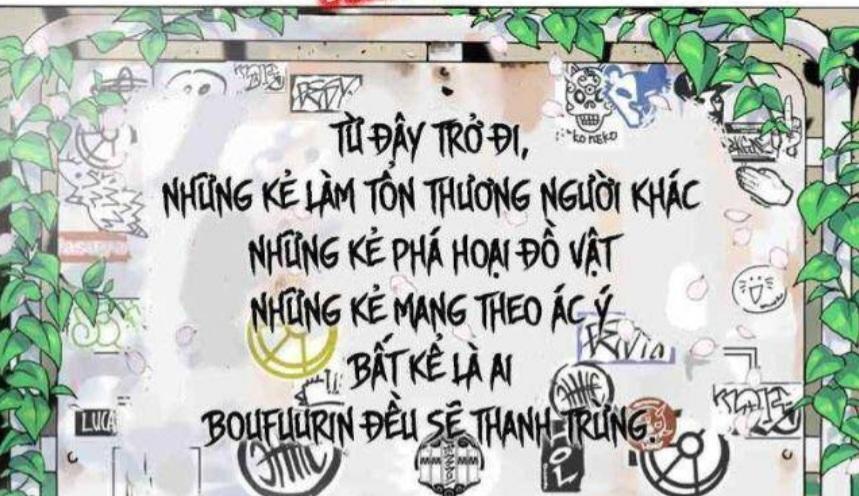 TỪ ĐÂY TRỞ ĐI,
NHỮNG KẺ LÀM TỔN THƯƠNG NGƯỜI KHÁC
NHỮNG KẺ PHÁ HOẠI ĐỒ VẬT
NHỮNG KẺ MANG THEO ÁC Ý
BẤT KỂ LÀ AI
BOUFUURIN ĐỀU SẼ THANH TRỪNG.
KO NEKO
LUCA